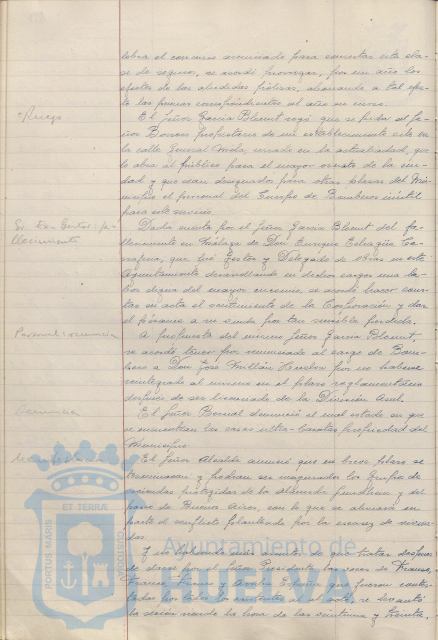 lebra el concurso anunciado para concertar esta cla-
se de seguro, se acordó prorrogar, por un año los
efectos de las aludidas pólizas, abonando a tal efec-
to las primas correspondientes al año en curso.
Ruego
El Señor García Blomet rogó que se pida al Se-
ñor Borrero propietario de un establecimiento sito en
la calle General Mola, cerrado en la actualidad, que
lo abra al público para el mayor ornato de la ciu-
dad y que sean designados para otras plazas del Mu-
nicipio el personal del Cuerpo de Bomberos inútil
para este servicio.
Dada cuenta por el Señor García Blomet del fa-
llecimiento en Málaga de Don Enrique
que fué Gestor y Delegado de obras en este
Ayuntamiento desarrollando en dichos cargos una la-
bor digna del mayor encomio, se acordó hacer cons-
tar en acta el sentimiento de la Corporación y dar
el pésame a su viuda por tan sensible pérdida.
Personal: renuncia
A propuesta del mismo Señor García Blomet,
se acordó tener por renunciado al cargo de Bom-
bero a Don José por no haberse
reintegrado al mismo en el plazo reglamentario
después de ser licenciado de la División Azul.
Denuncia
El Señor Bernal denunció el mal estado en que
se encuentran las casas ultra-baratas propiedad del
Municipio.
El Señor Alcalde anunció que en breve plazo se
terminarán y podrán ser inaugurados los Grupos de
viviendas protegidas de la Alameda Sundheim y del
barrio de Buenos Aires, con lo que se aliviará en
parte el conflicto planteado por la escasez de vivien-
das.
Y no habiendo más asuntos de que tratar después
de darse por el Señor Presidente las voces de Franco,
Franco, Franco y Arriba España que fueron contes-
tadas por todos los asistentes al acto, se levantó
la sesión siendo la hora de las veintiuna y treinta,
PORTUS MARIS
ET TERRÆ
CUSTODIA
Ayuntamiento de
HUELVA